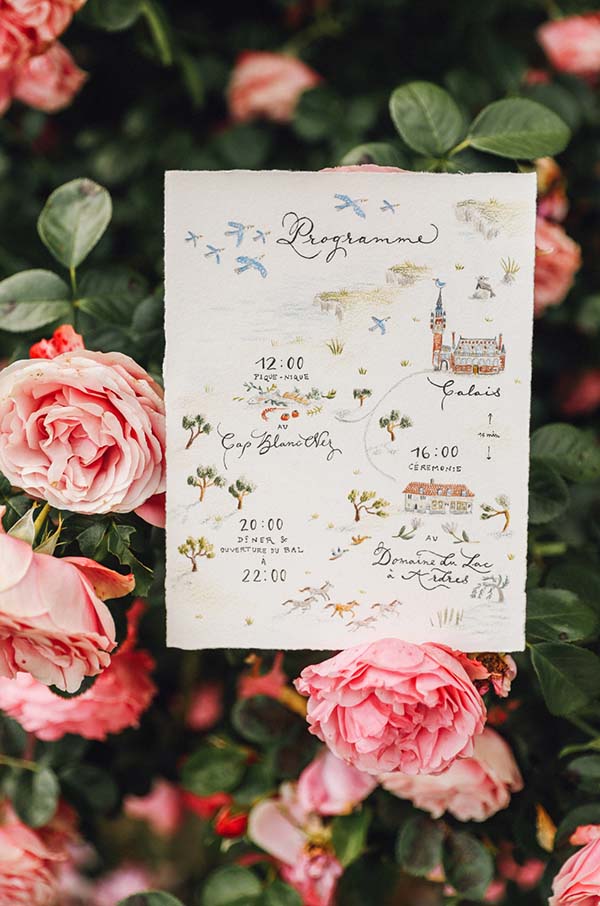 Programme
12:00
PIQUE-NIQUE
AU
Cap Blanc Nez
Calais
15 min
16:00
CÉRÉMONIE
AU
Domaine du Lac
à Ardres
20:00
DÎNER &
OUVERTURE DU BAL
À
22:00